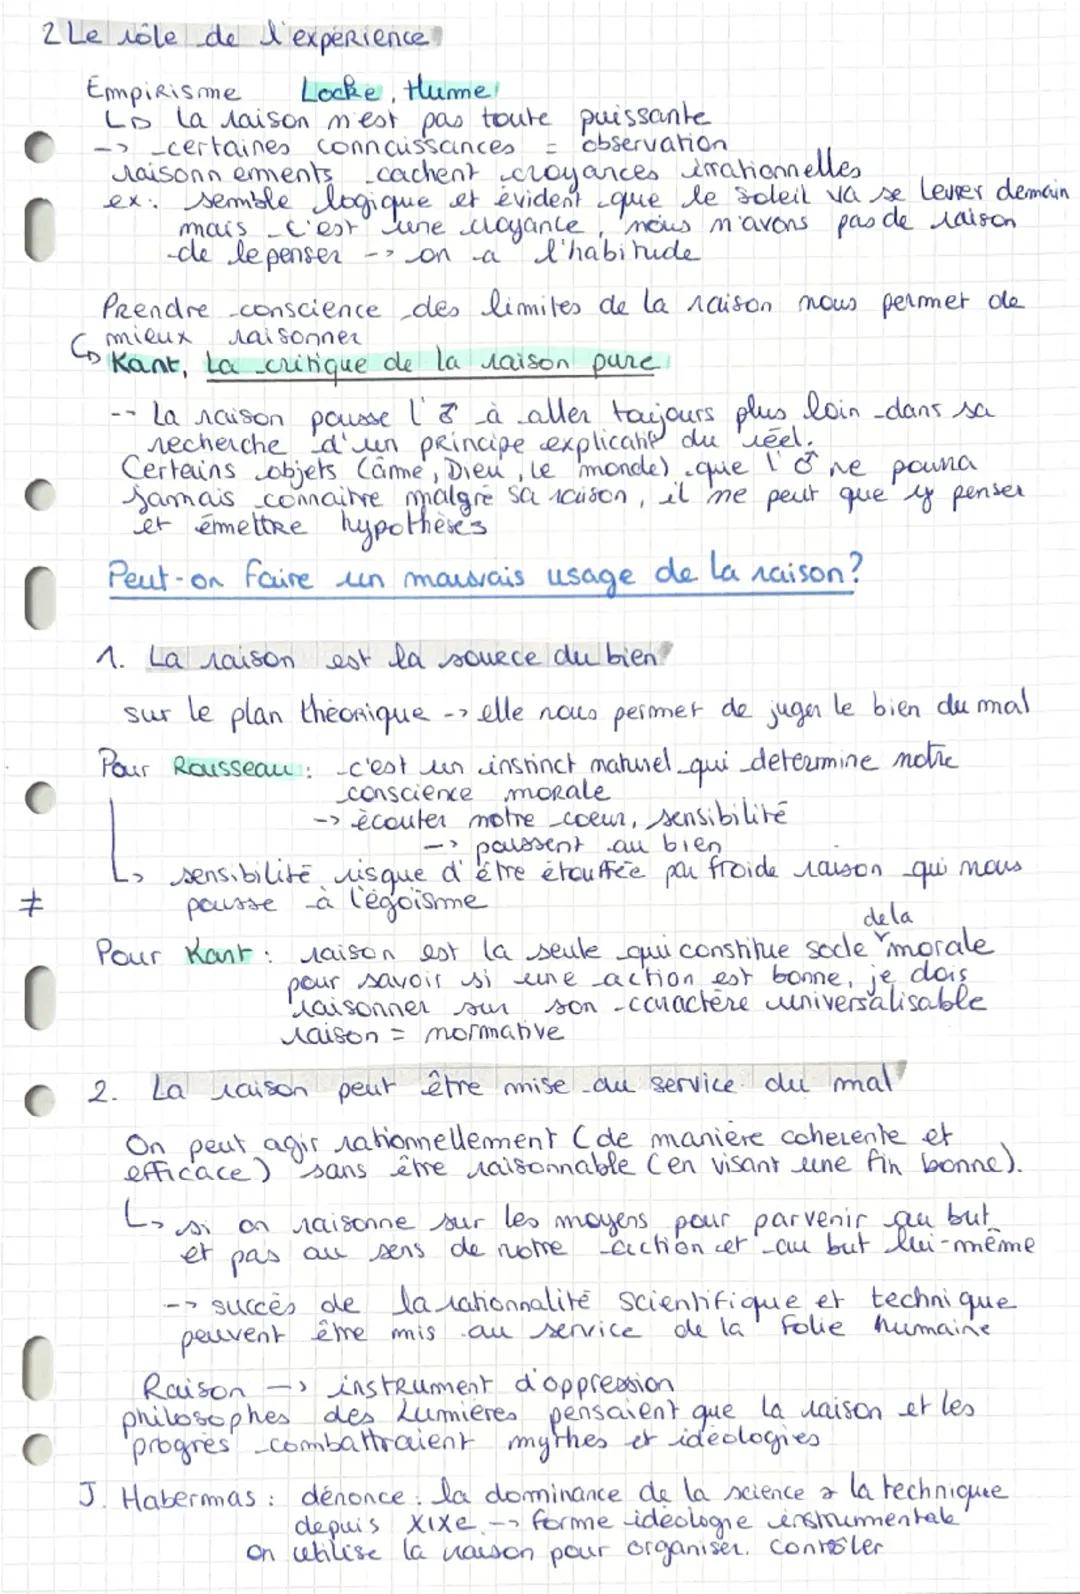 2 Le rôle de l'expérience
Empirisme Locke, Hume
↳ la raison n'est pas toute puissante
-> certaines connaissances = observation
raisonnements cachent croyances irrationnelles
ex: semble logique et évident que le soleil va se lever demain
mais c'est une croyance, nous n'avons pas de raison
de le penser --> on a l'habitude
Prendre conscience des limites de la raison nous permet de
mieux raisonner
↳ Kant, La critique de la raison pure
-- la raison pousse l'♂ à aller toujours plus loin dans sa
recherche d'un principe explicatif du réel.
Certains objets (âme, Dieu, le monde) que l'♂ ne pourra
jamais connaitre malgré sa raison, il ne peut que y penser
et émettre hypothèses
Peut-on faire un mauvais usage de la raison?
1. La raison est la source du bien
sur le plan théorique --> elle nous permet de juger le bien du mal
Pour Rousseau : c'est un instinct naturel qui determine notre
conscience morale
-> écouter notre coeur, sensibilité
--> poussent au bien
↳ sensibilité risque d'être étouffée par froide raison qui nous
≠ pousse à l'égoïsme
de la
Pour Kant : raison est la seule qui constitue socle morale
pour savoir si une action est bonne, je dois
raisonner sur son caractère universalisable
raison = normative
2. La raison peut être mise au service du mal
On peut agir rationnellement (de manière coherente et
efficace) sans être raisonnable (en visant une fin bonne).
↳ si on raisonne sur les moyens pour parvenir au but
et pas au sens de notre action et au but lui-même
--> succès de la rationnalité scientifique et technique
peuvent être mis au service de la folie humaine
Raison —> instrument d'oppression
philosophes des Lumières pensaient que la raison et les
progrès combattraient mythes et idéologies
J. Habermas : dénonce : la dominance de la science & la technique
depuis XIXe --> forme idéologie instrumentale
on utilise la raison pour organiser. contrôler